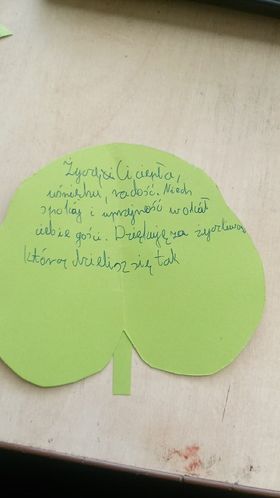 Życzę Ci ciepła,
uśmiechu, radość. Niech
spokój i uprzejmość wokół
ciebie gości. Dziękuję za życzliwość
którą dzielisz się tak